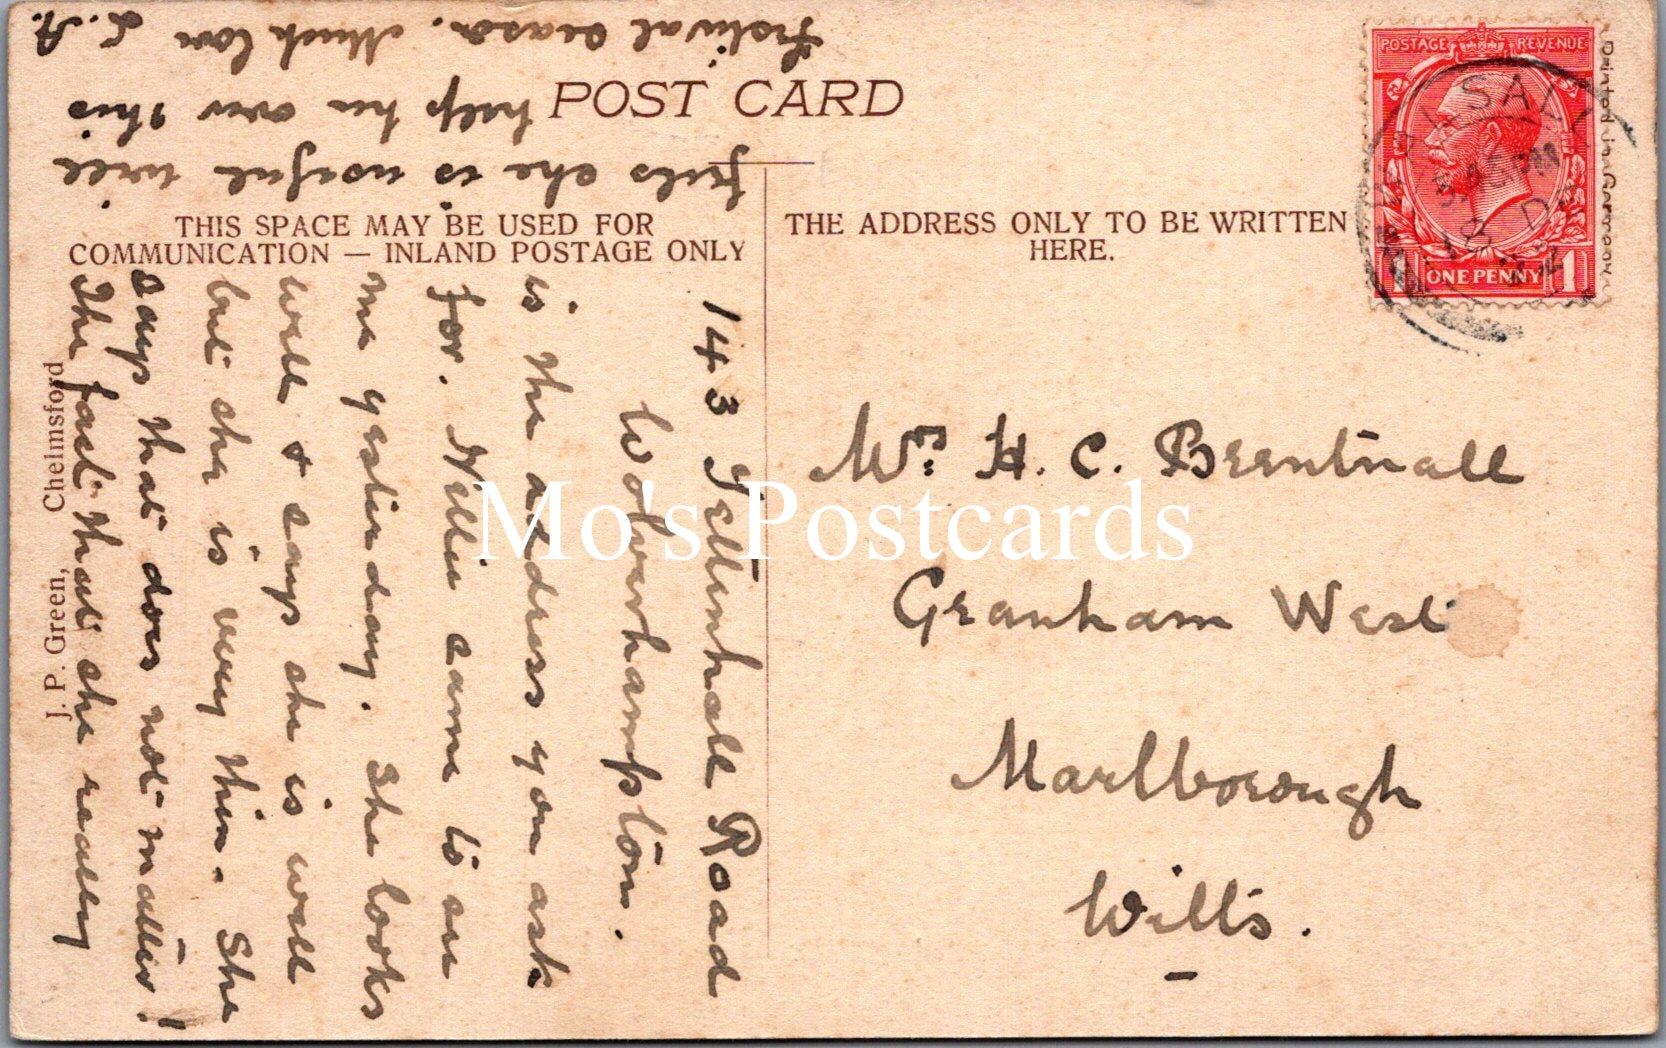 POST CARD
THIS SPACE MAY BE USED FOR
COMMUNICATION — INLAND POSTAGE ONLY
THE ADDRESS ONLY TO BE WRITTEN
HERE.
POSTAGE REVENUE
1 ONE PENNY 1
WALSALL
Printed in Germany
J. P. Green, Chelmsford
143 Tettenhall Road
Wolverhampton.
is the address you ask
for. Nellie came to see
me yesterday. She looks
well & says she is well
but she is very thin. She
says that does not matter!
The fact that she really
feels she is useful will
help her over this
Festival season. Much love L.A.
Mrs. H. C. Brentnall
Granham West
Marlborough
Wilts.
Mo's Postcards